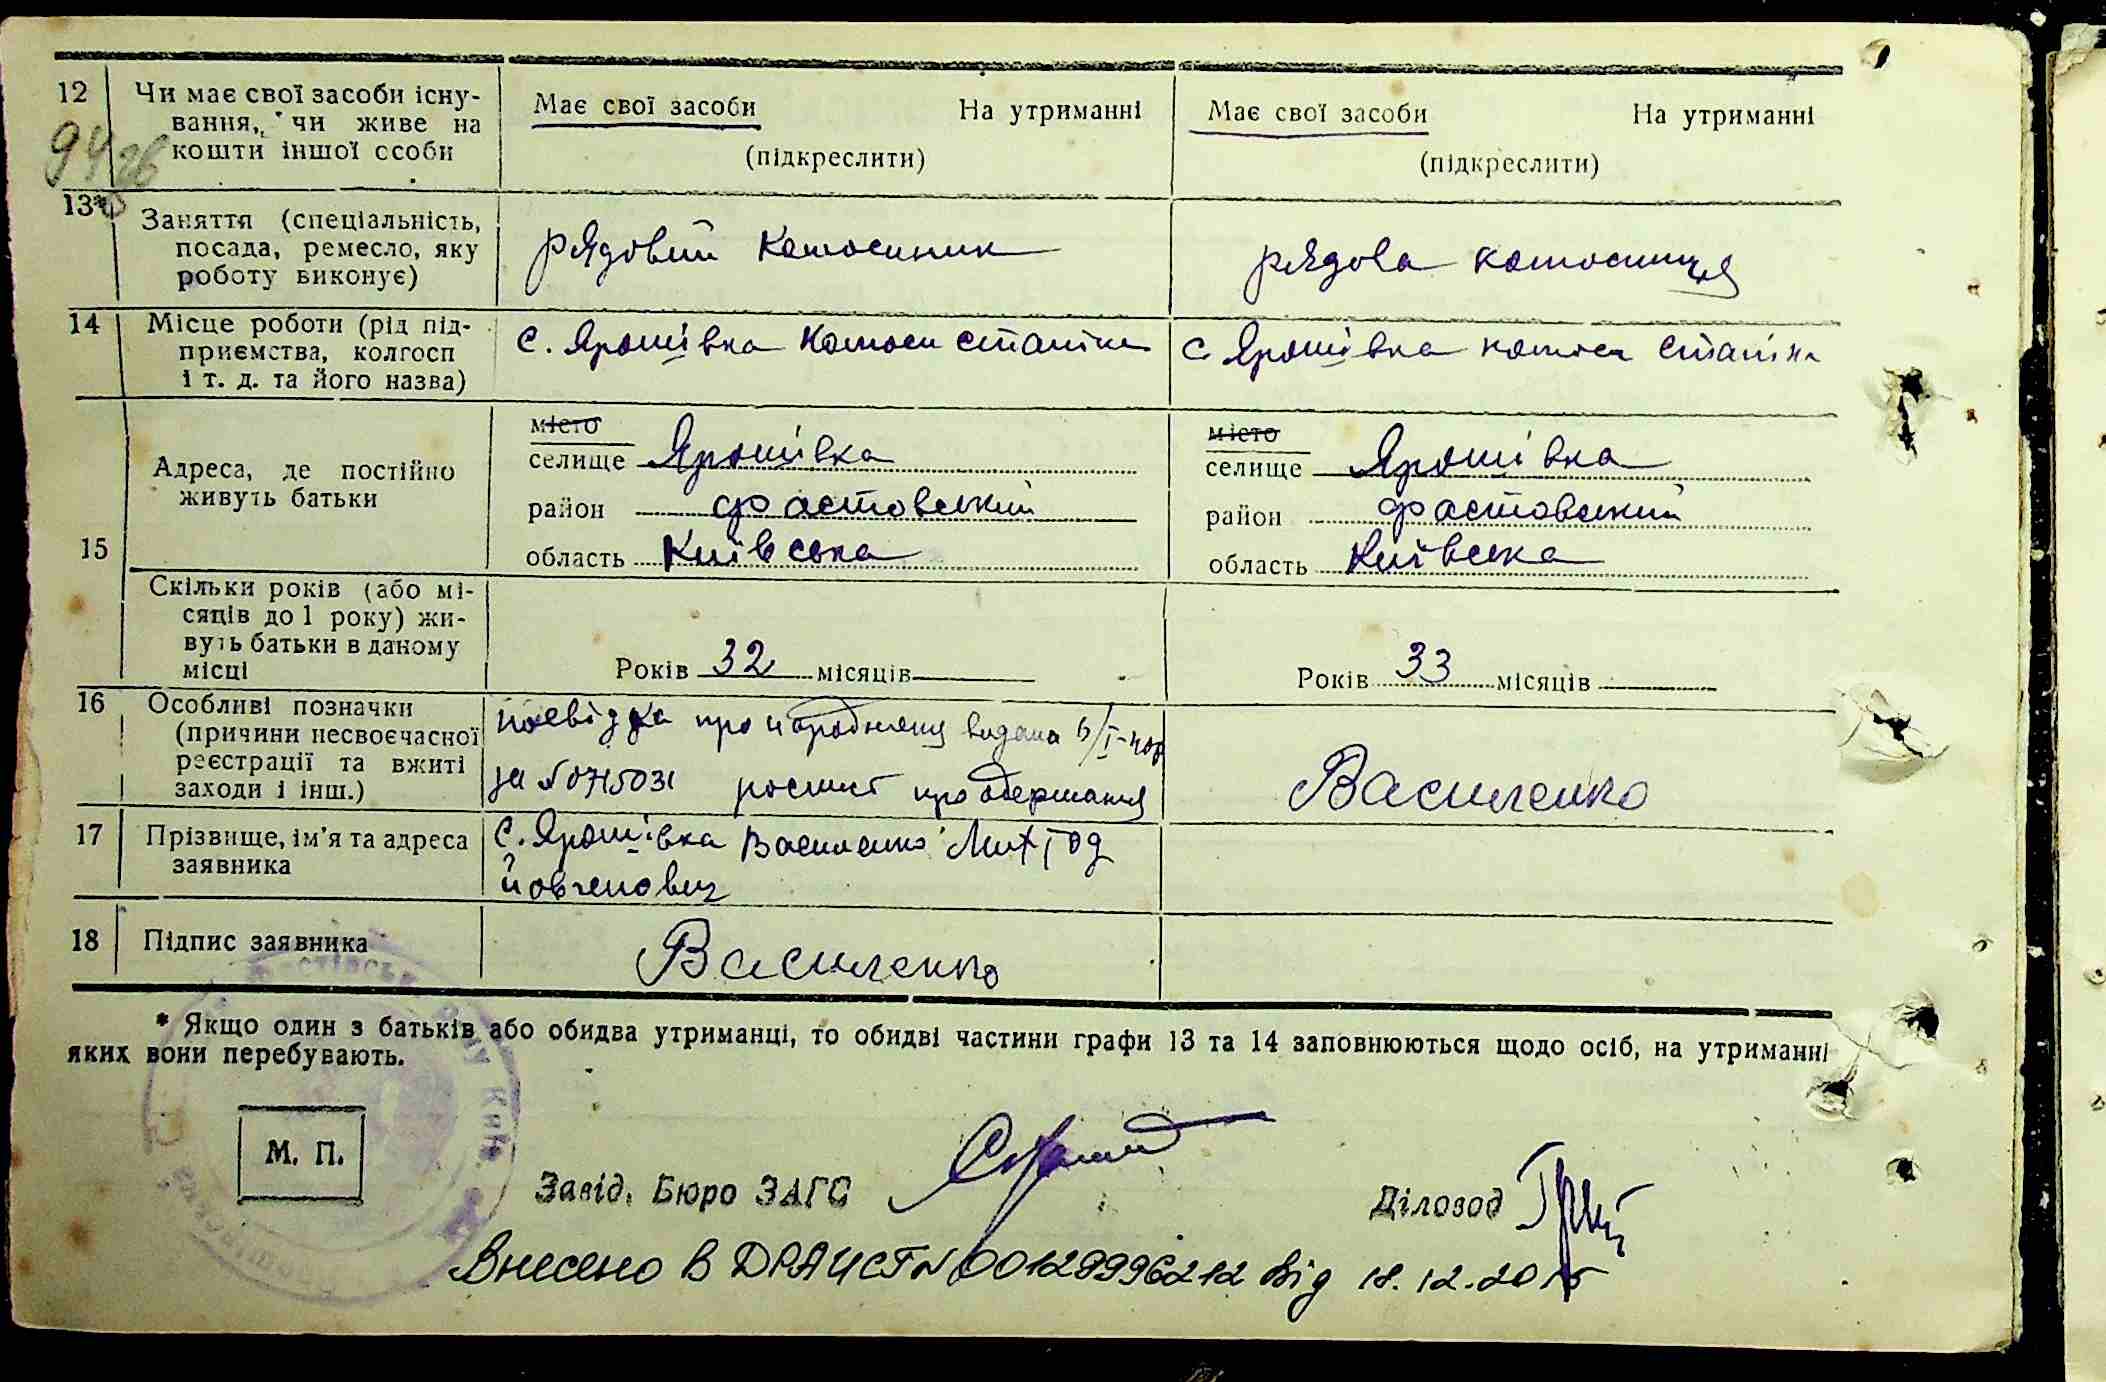 12 Чи має свої засоби існу-
вання, чи живе на
кошти іншої особи
Має свої засоби На утриманні
(підкреслити)
Має свої засоби На утриманні
(підкреслити)
13* Заняття (спеціальність,
посада, ремесло, яку
роботу виконує)
рядовий колгоспник
рядова колгоспниця
14 Місце роботи (рід під-
приємства, колгосп
і т. д. та його назва)
с. Ярошівка колгосп сталіна
с. Ярошівка колгосп сталіна
15 Адреса, де постійно
живуть батьки
місто
селище Ярошівка
район фастовський
область Київська
місто
селище Ярошівка
район фастовський
область Київська
Скільки років (або мі-
сяців до 1 року) жи-
вуть батьки в даному
місці
Років 32 місяців
Років 33 місяців
16 Особливі позначки
(причини несвоєчасної
реєстрації та вжиті
заходи і інш.)
посвідка про народження видана
за № 0715031 розпист про одержання
Василенко
17 Прізвище, ім'я та адреса
заявника
С. Ярошівка Василенко
18 Підпис заявника
Василенко
* Якщо один з батьків або обидва утриманці, то обидві частини графи 13 та 14 заповнюються щодо осіб, на утриманні
яких вони перебувають.
М. П.
Завід. Бюро ЗАГС
Діловод
Внесено в ДРАЦСГ № 00129996212 від 18.12.2015